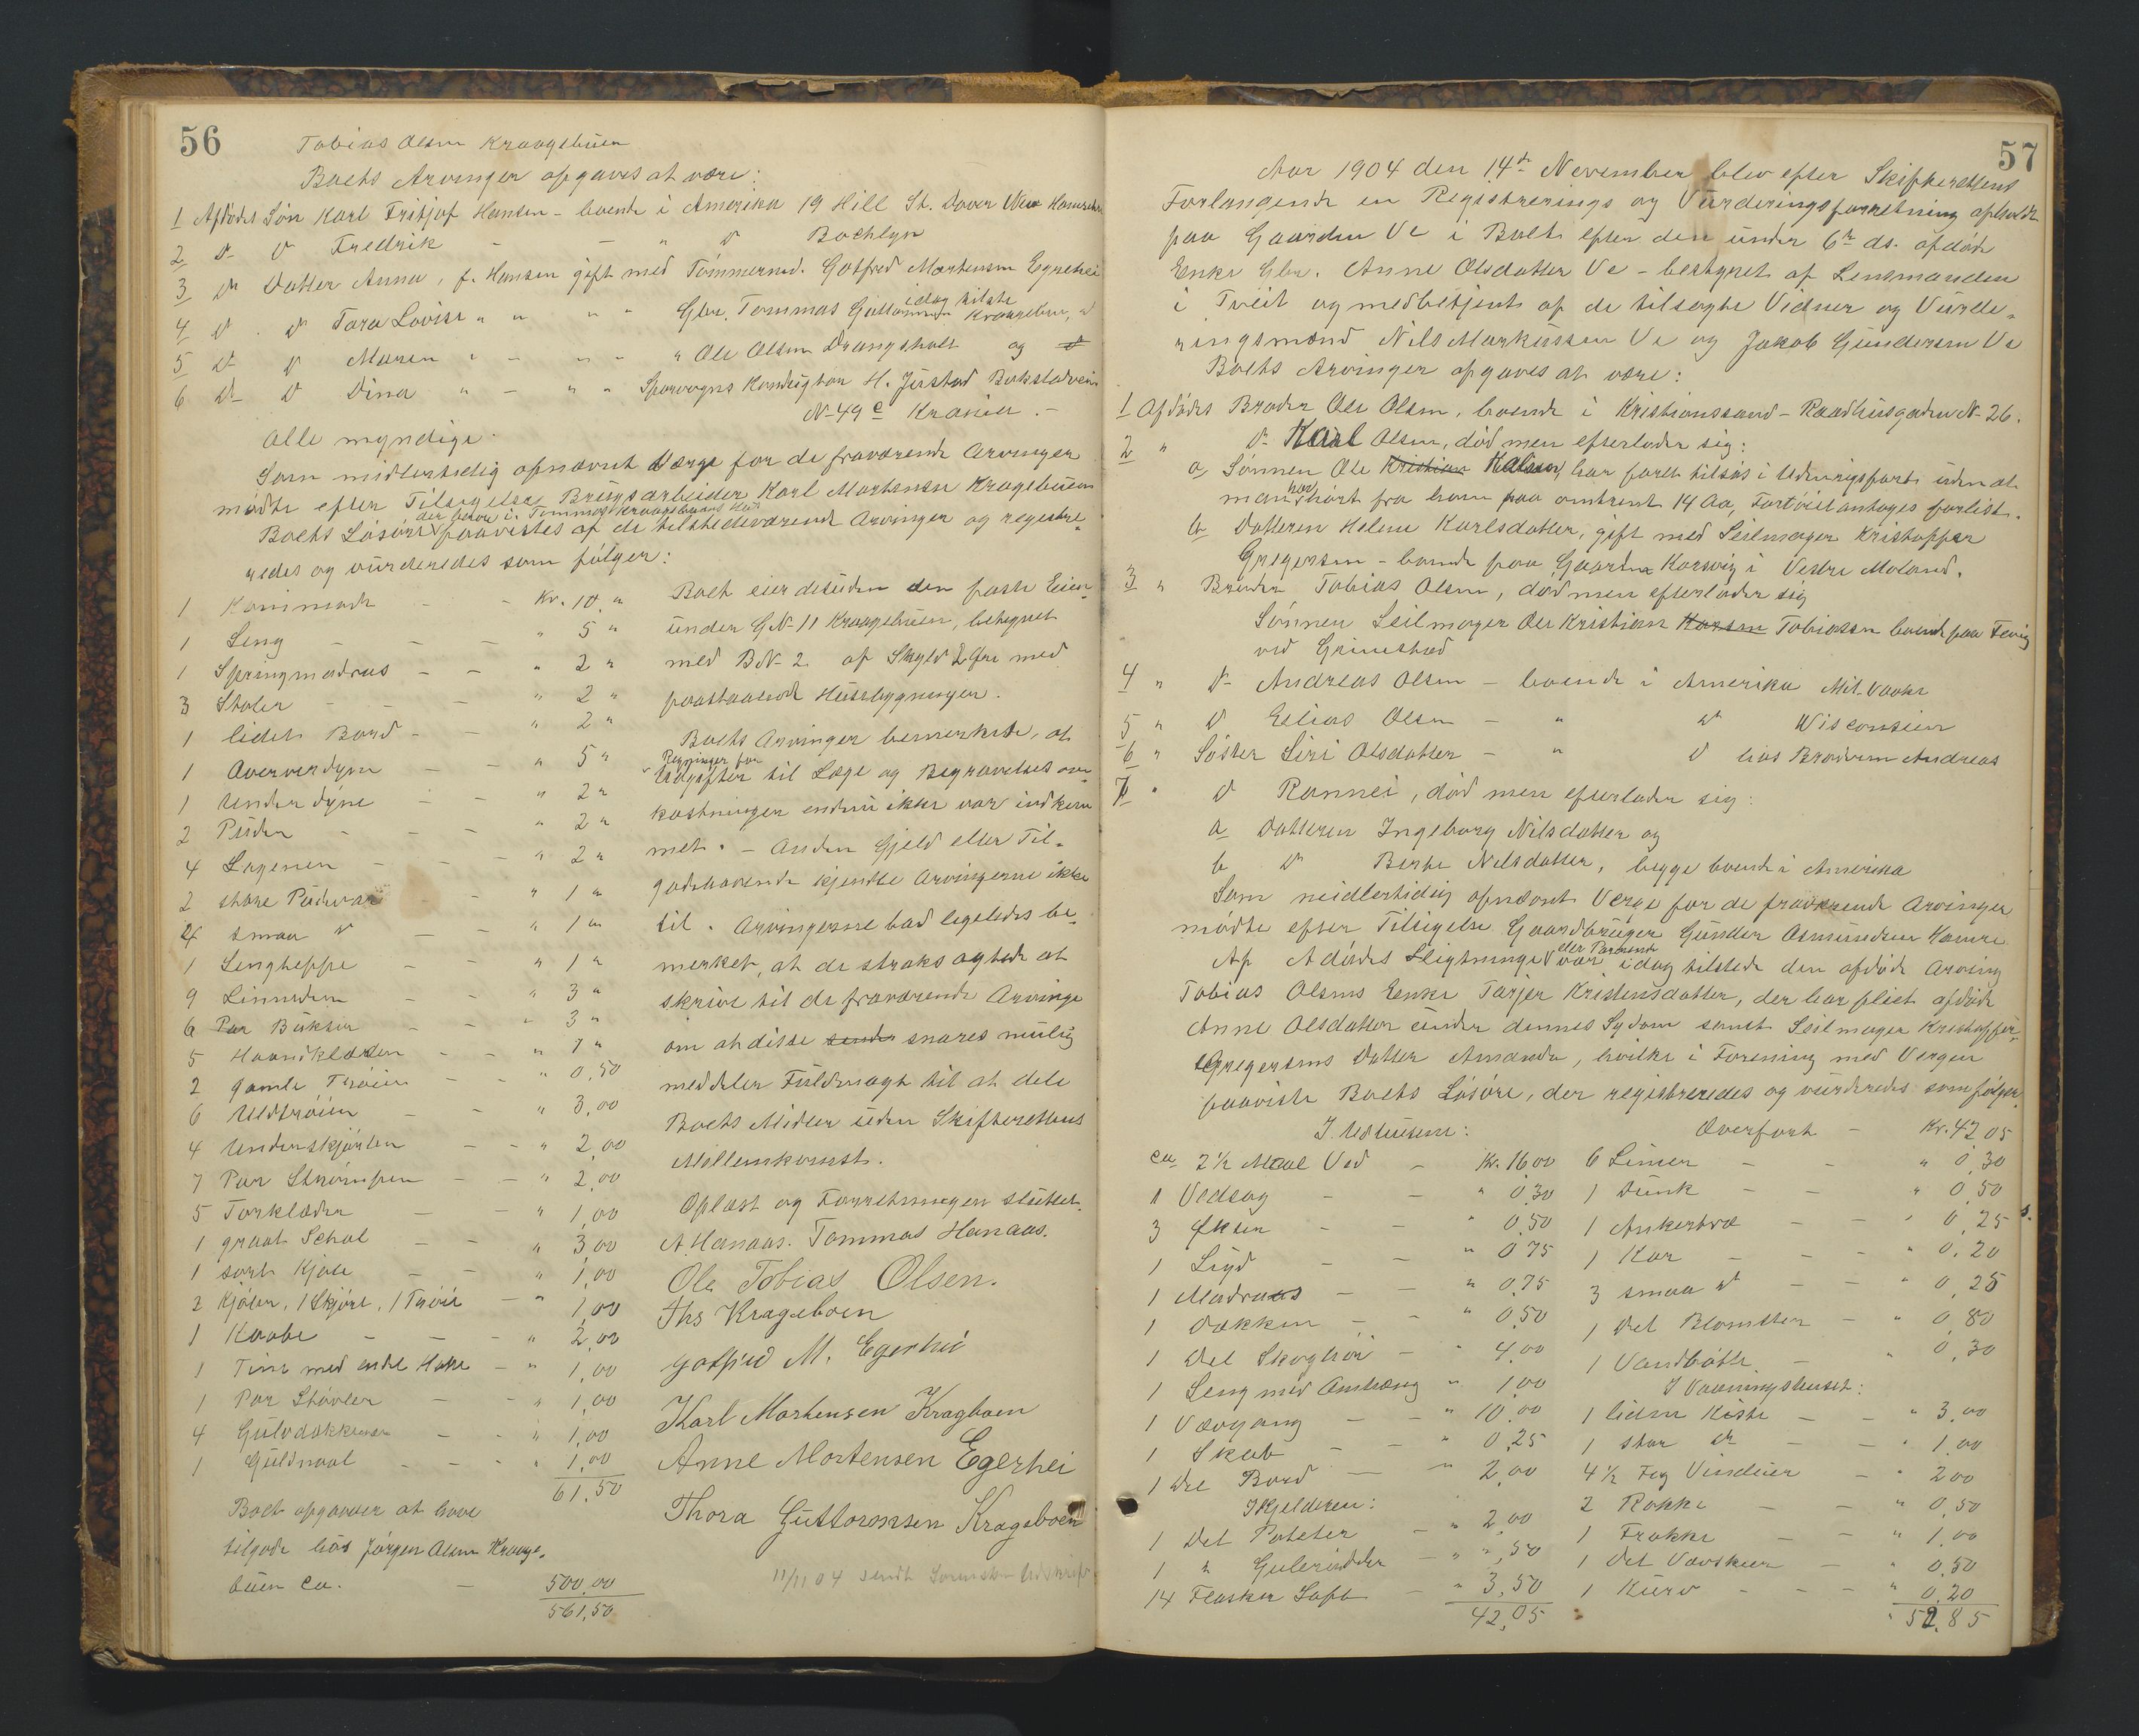 56
Tobias Olsen Kraagebuen
Boets Arvinger opgaves at være:
1 Afdødes Søn Karl Fritjof Hansen - boende i Amerika 19 Hill St. Dover New
2 D D Fredrik - - " D
3 D Datter Anna, f. Hansen gift med Tømmermd. Gotfred Mortensen Egrehei
4 D D Tora Lovise " " " " Gbr. Tommas Guttormsen Kraagebuen, idag tilste
5 D D Maren " - " " " Ole Olsen Drangsholt og D
6 D D Dina " - " " Sporvogns Konduktør H. Justad
N- 49 e Krania. -
Alle myndige.
Som midlertidig opnævnt Værge for de fraværende Arvinger
mødte efter Tilsigelse Brugsarbeider Karl Mortensen Kragebuen
Boets Løsøre der beror i Tommas Kraagebuens Hus paavistes af de tilstedeværende Arvinger og registre-
redes og vurderedes som følger:
1 Kommode - - Kr. 10 "
1 Seng - - - " 5 "
1 Springmadras - - " 2 "
3 Stoler - - - " 2 "
1 lidet Bord - - " 2 "
1 Oververdyne - - " 5 "
1 Underdyne - - " 2 "
2 Puder - - - " 2 "
4 Lagener - - - " 2 "
2 store Pudevar - " 1 "
4 smaa D - - " 1 "
1 Sengteppe - - " 1 "
9 Linneder - - " 3 "
6 Par Bukser - - " 3 "
5 Haandklæder - - " 1 "
2 gamle Trøier - - " 0,50
6 Uldtrøier - - " 3,00
4 Underskjørter - - " 2,00
7 Par Strømper - - " 2,00
5 Forklæder - - " 1,00
1 graat Schal - - " 3,00
1 sort Kjole - - " 1,00
2 Kjoler, 1 Skjørt, 1 Trøie - " 1,00
1 Kaabe - - - " 2,00
1 Tine med endel - " 1,00
1 Par Støvler - - " 1,00
4 Gulvdækkener - - " 1,00
1 Guldnaal - - - " 1,00
61,50
Boet opgaves at have
tilgode hos Jørgen Olsen Kraage-
buen ca. - 500,00
561,50
Boet eier desuden den faste Eien-
under G.N- 11 Kraagebuen, betegnet
med B.N- 2 af Skyld 2 Øre med
paastaaende Husebygninger.
Boets Arvinger bemerkede, at
Regninger for Udgifter til Læge og Begravelses om-
kostninger endnu ikke var indkom
met. - Anden Gjeld eller Til-
godehavende kjendte Arvingerne ikke
til. Arvingerne bad ligeledes be-
merket, at de straks agtede at
skrive til de fraværende Arvinge
om at disse sender snarest mulig
meddeler Fuldmagt til at dele
Boets Midler uden Skifterettens
Mellemkomst.
Oplæst og Forretningen sluttet.
A. Hanaas. Tommas Hanaas.
Ole Tobias Olsen.
Ths Krageboen
Gotfred M. Egerhei
Karl Mortensen Kragboen
Anne Mortensen Egerhei
Thora Guttormsen Krageboen
11/11 04 sendt Sorenskr. Udskrift
57
Aar 1904 den 14de November blev efter Skifterettens
Forlangende en Registrerings og Vurderingsforretning afholdt
paa Gaarden Ve i Tveit efter den under 6te ds. afdøde
Enke Gbr. Anne Olsdatter Ve - bestyret af Lensmanden
i Tveit og medbetjent af de tilsagte Vidner og Vurde-
ringsmænd Nils Markussen Ve og Jakob Gundersen Ve
Boets Arvinger opgaves at være:
1 Afdødes Broder Ole Olsen, boende i Kristianssand - Raadhusgaden N- 26.
2 " D Karl Olsen, død men efterlader sig:
a Sønnen Ole Kristian Kalsen, har faret tilsjøs i Udenrigsfart uden at
man har hørt fra ham paa omtrent 14 Aa, Fartøiet antages forlist.
b Datteren Helene Karlsdatter, gift med Seilmager Kristoffer
Gregersen - boende paa Gaarden Korsvig i Vestre Moland.
3 " Broder Tobias Olsen, død men efterlader sig
Sønnen Seilmager Ole Kristian Karsen Tobiassen boende paa Fevig
ved Grimstad
4 " D Andreas Olsen - boende i Amerika Mil-Vaake
5 " D Elias Olsen - " D Wisconsien
6 " Søster Siri Olsdatter - " D hos Broderen Andreas
7 " D Rannei, død men efterlader sig:
a Datteren Ingeborg Nilsdatter og
b D Berte Nilsdatter, begge boende i Amerika
Som midlertidig opnævnt Verge for de fraværende Arvinger
mødte efter Tilsigelse Gaardbruger Gunder Asmundsen Hamre
Af Afdødes Slegtninge eller Paarørende var idag tilstede den afdøde Arving
Tobias Olsens Enke Tarjer Kristensdatter, der har pleiet afdøde
Anne Olsdatter under dennes Sygdom samt Seilmager Kristoffer
Gregersens Datter Amanda, hvilke i Forening med Vergen
paaviste Boets Løsøre, der registreredes og vurderedes som følger
I Udhusene:
ca 2 1/2 Maal Ved - Kr. 16 00
1 Vedsag - - " 0 30
3 Økser - - " 0,50
1 Ligd - - " 0 75
1 Madrass - - " 0,75
1 Dækken - - " 0,50
1 Del Skoghøi - " 4,00
1 Seng med Omhæng " 1,00
1 Vævgang - - " 10,00
1 Skab - - " 0,25
1 Del Bord - " 2,00
I Kjelderen:
1 Del Poteter - " 2,00
1 " Gulerødder - " ",50
14 Flasker Saft - " 3,50
42,05
Overført - Kr. 42 05
6 Limer - - " 0,30
1 Dunk - - " 0,50
1 Ankertræ - - " 0,25
1 Kar - - - " 0,20
3 smaa D - - " 0,25
1 Del Blomster - " 0,80
1 Vandbøtte - " 0,30
I Vaaningshuset:
1 liden Kiste - - " 3,00
1 stor D - - " 1,00
4 1/2 Fag Vinduer - " 2 00
2 Rokke - - " 0,50
1 Frakke - - " 1,00
1 Del Vævskeer - " 0,50
1 Kurv - - - " 0,20
" 52,85